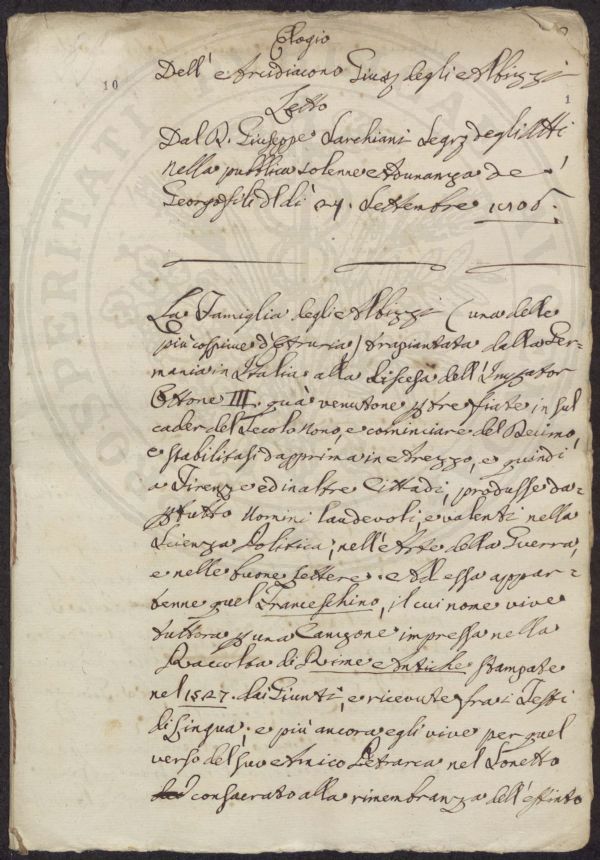 Elogio
10
Dell'Arcidiacono Gius. degli Albizzi
1
Letto
Dal D. Giuseppe Sarchiani Segr. degli Atti
nella pubblica solenne Adunanza de'
Georgofili il dì 24. Settembre
La Famiglia degli Albizzi (una delle
più cospicue d'Etruria) trapiantata dalla Ger=
mania in Italia alla discesa dell'Imperator
Ottone III. quà venutone per tre fiate in sul
cader del Secolo Nono, e cominciare del Decimo,
e stabilitasi dapprima in Arezzo, e quindi
a Firenze ed in altre Cittadi, produsse da=
pertutto Uomini laudevoli, e valenti nella
Scienza Politica, nell'Arte della Guerra,
e nelle buone Lettere. Ad essa appar=
tenne quel Franceschino, il cui nome vive
tuttora per una Canzone impressa nella
Raccolta di Rime Antiche stampate
nel 1527. dai Giunti, e ricevute fra i Testi
di Lingua; e più ancora egli vive per quel
verso del suo Amico Petrarca nel Sonetto
consacrato alla rimembranza dell'estinto
PROSPERITATI